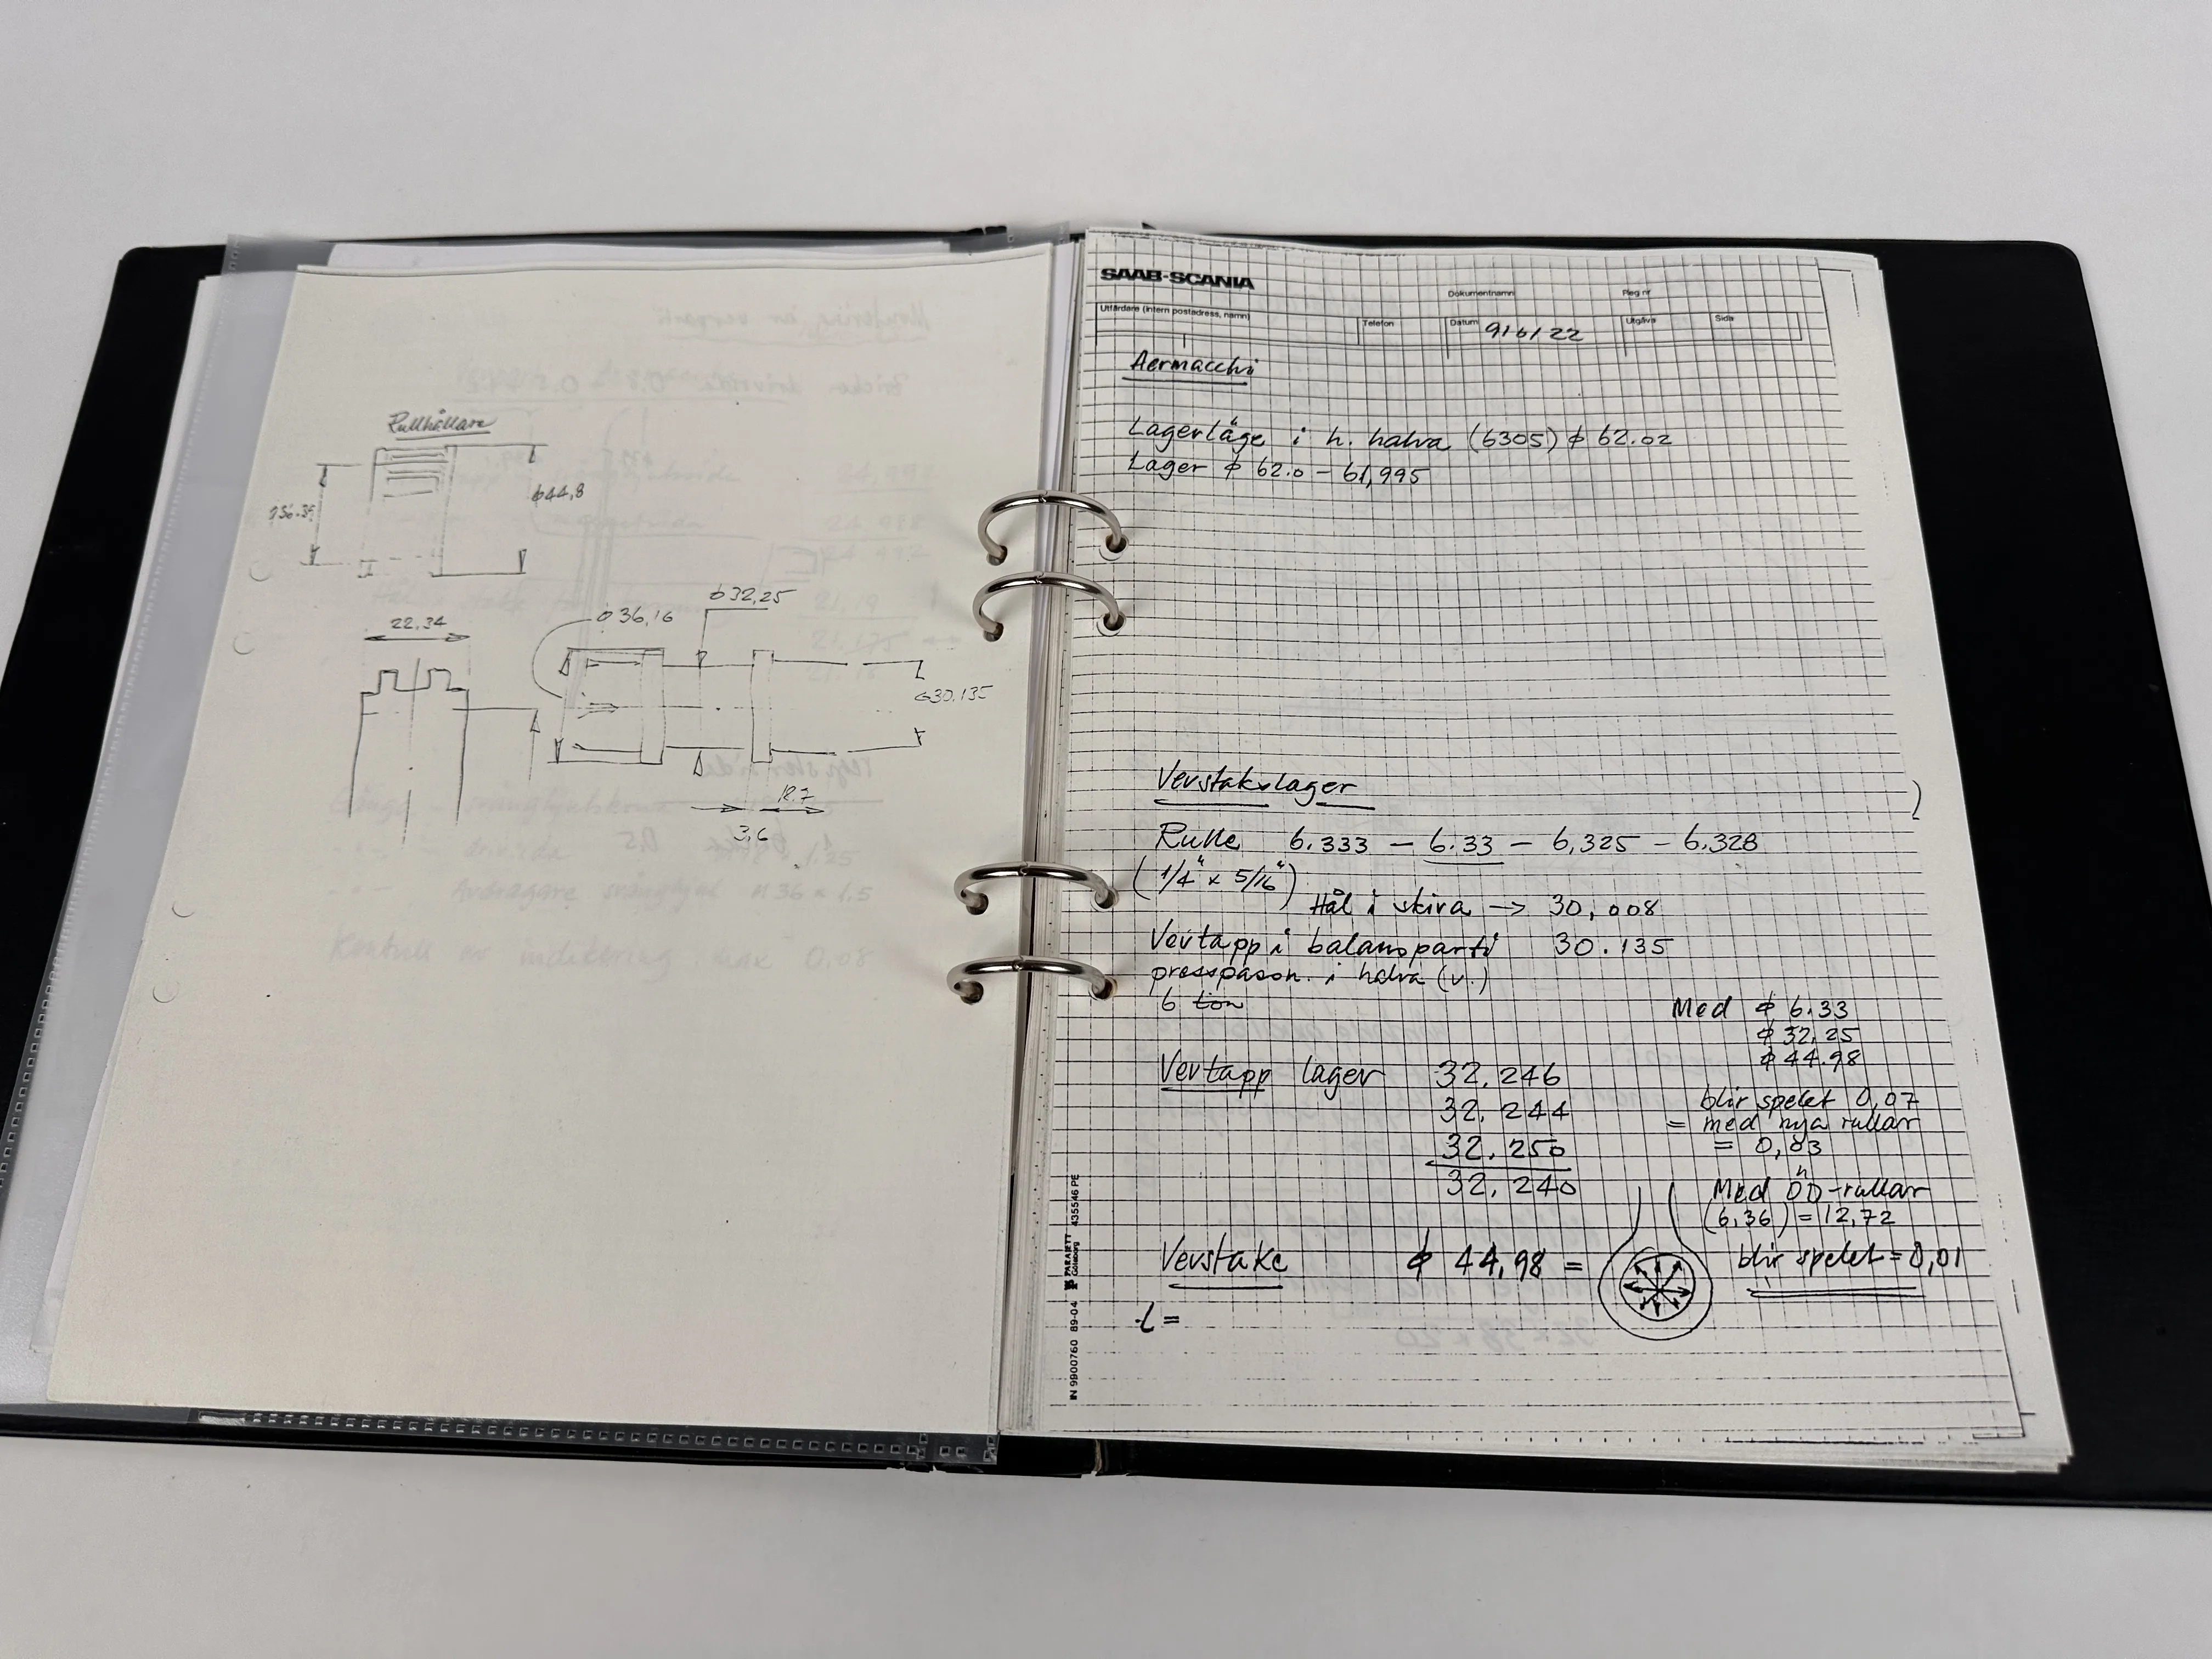 Rullhållare
ϕ44,8
22,34
ϕ36,16
ϕ32,25
ϕ30.135
3,6
SAAB-SCANIA
Dokumentnamn
Reg nr
Utfärdare (intern postadress, namn)
Telefon
Datum 91 6/22
Utgåva
Sida
Aermacchi
Lagerläge i h. halva (6305) ϕ 62.02
Lager ϕ 62.0 – 61,995
Vevstakslager
Rulle 6.333 – 6.33 – 6,325 – 6.328
(1/4" x 5/16")
Hål i skiva → 30,008
Vevtapp i balansparti 30.135
i halva (v.)
6 ton
Med ϕ 6.33
ϕ 32,25
ϕ 44.98
Vevtapp lager 32,246
32,244
32,250
32,240
blir spelet 0,07
= med nya rullar
= 0,03
Med ÖD-rullar
(6,36) = 12,72
blir spelet = 0,01
Vevstake ϕ 44,98 =
L =
IN 9900760 89-04 PARAJETT Göteborg 435546 PE